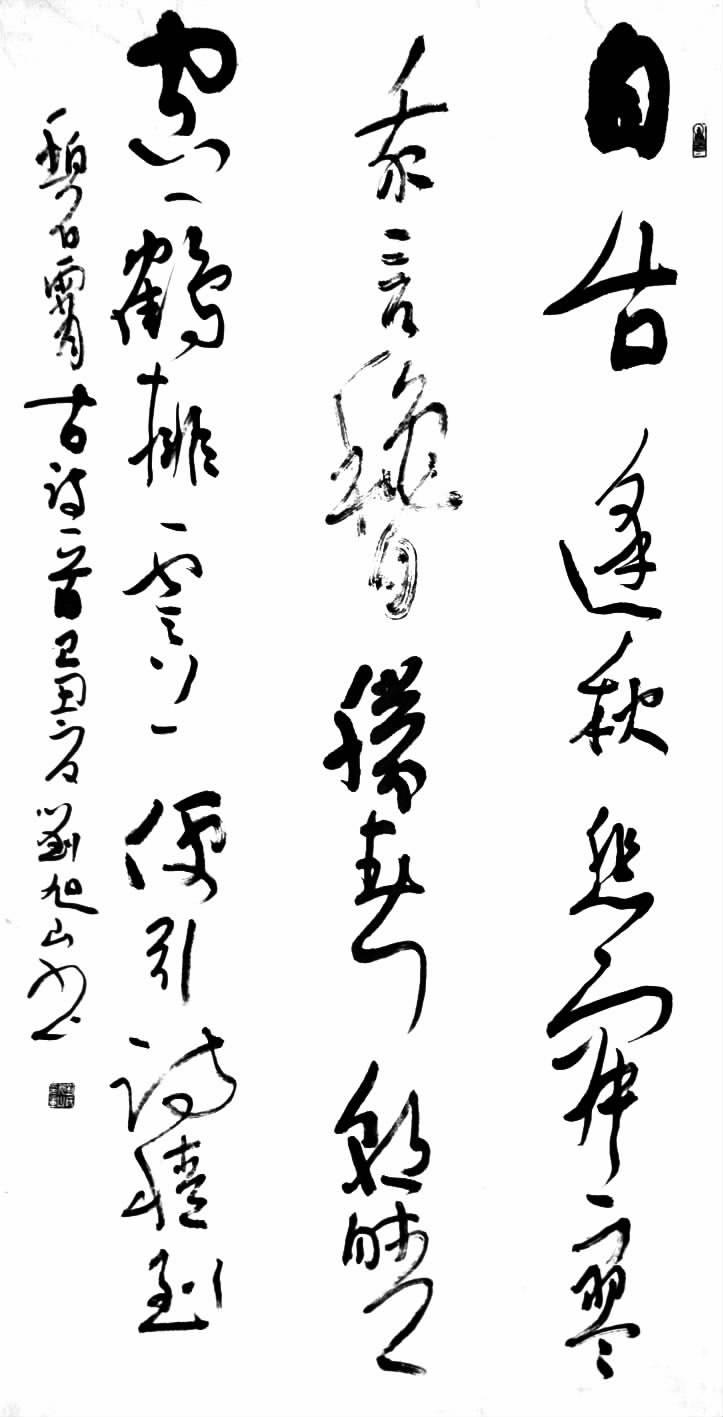 自古逢秋悲寂寥
我言秋日勝春朝晴
空一鶴排雲上便引詩情到
碧霄古詩一首己丑夏劉旭山書